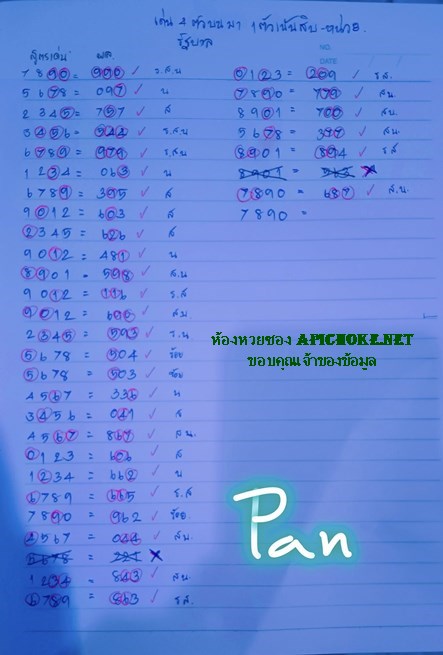 เด่น 4 ตัวบนมา 1 ตัวเน้นสิบ-หน่วย.
รัฐบาล
NO.
DATE
สูตรเด่น ผล.
7890 = 990 ✓ ร.ส.น
5678 = 097 ✓ น
2345 = 757 ✓ ส
3456 = 543 ✓ ร.ส.น
6789 = 979 ✓ ร.ส.น
1234 = 063 ✓ น
6789 = 395 ✓ ส
9012 = 603 ✓ ส
2345 = 626 ✓ ส
9012 = 481 ✓ น
8901 = 598 ✓ ส.น
9012 = 116 ✓ ร.ส
9012 = 695 ✓ ส.น
2345 = 593 ✓ ร.น
5678 = 504 ✓ ร้อย
5678 = 503 ✓ ร้อย
4567 = 336 ✓ น
3456 = 041 ✓ ส
4567 = 867 ✓ ส.น.
0123 = 606 ✓ ส
1234 = 662 ✓ น
6789 = 665 ✓ ร.ส
7890 = 962 ✓ ร้อย.
4567 = 044 ✓ ส.น.
5678 = 221 ✗
1234 = 843 ✓ ส.น.
6789 = 863 ✓ ร.ส.
0123 = 209 ✓ ร.ส.
7890 = 779 ✓ ส.น.
8901 = 700 ✓ ส.น.
5678 = 377 ✓ ส.น.
8901 = 894 ✓ ร.ส
8901 = 563 ✗
7890 = 687 ✓ ส.น.
7890 =
ห้องหวยซอง APICHOKE.NET
ขอบคุณเจ้าของข้อมูล
Pan